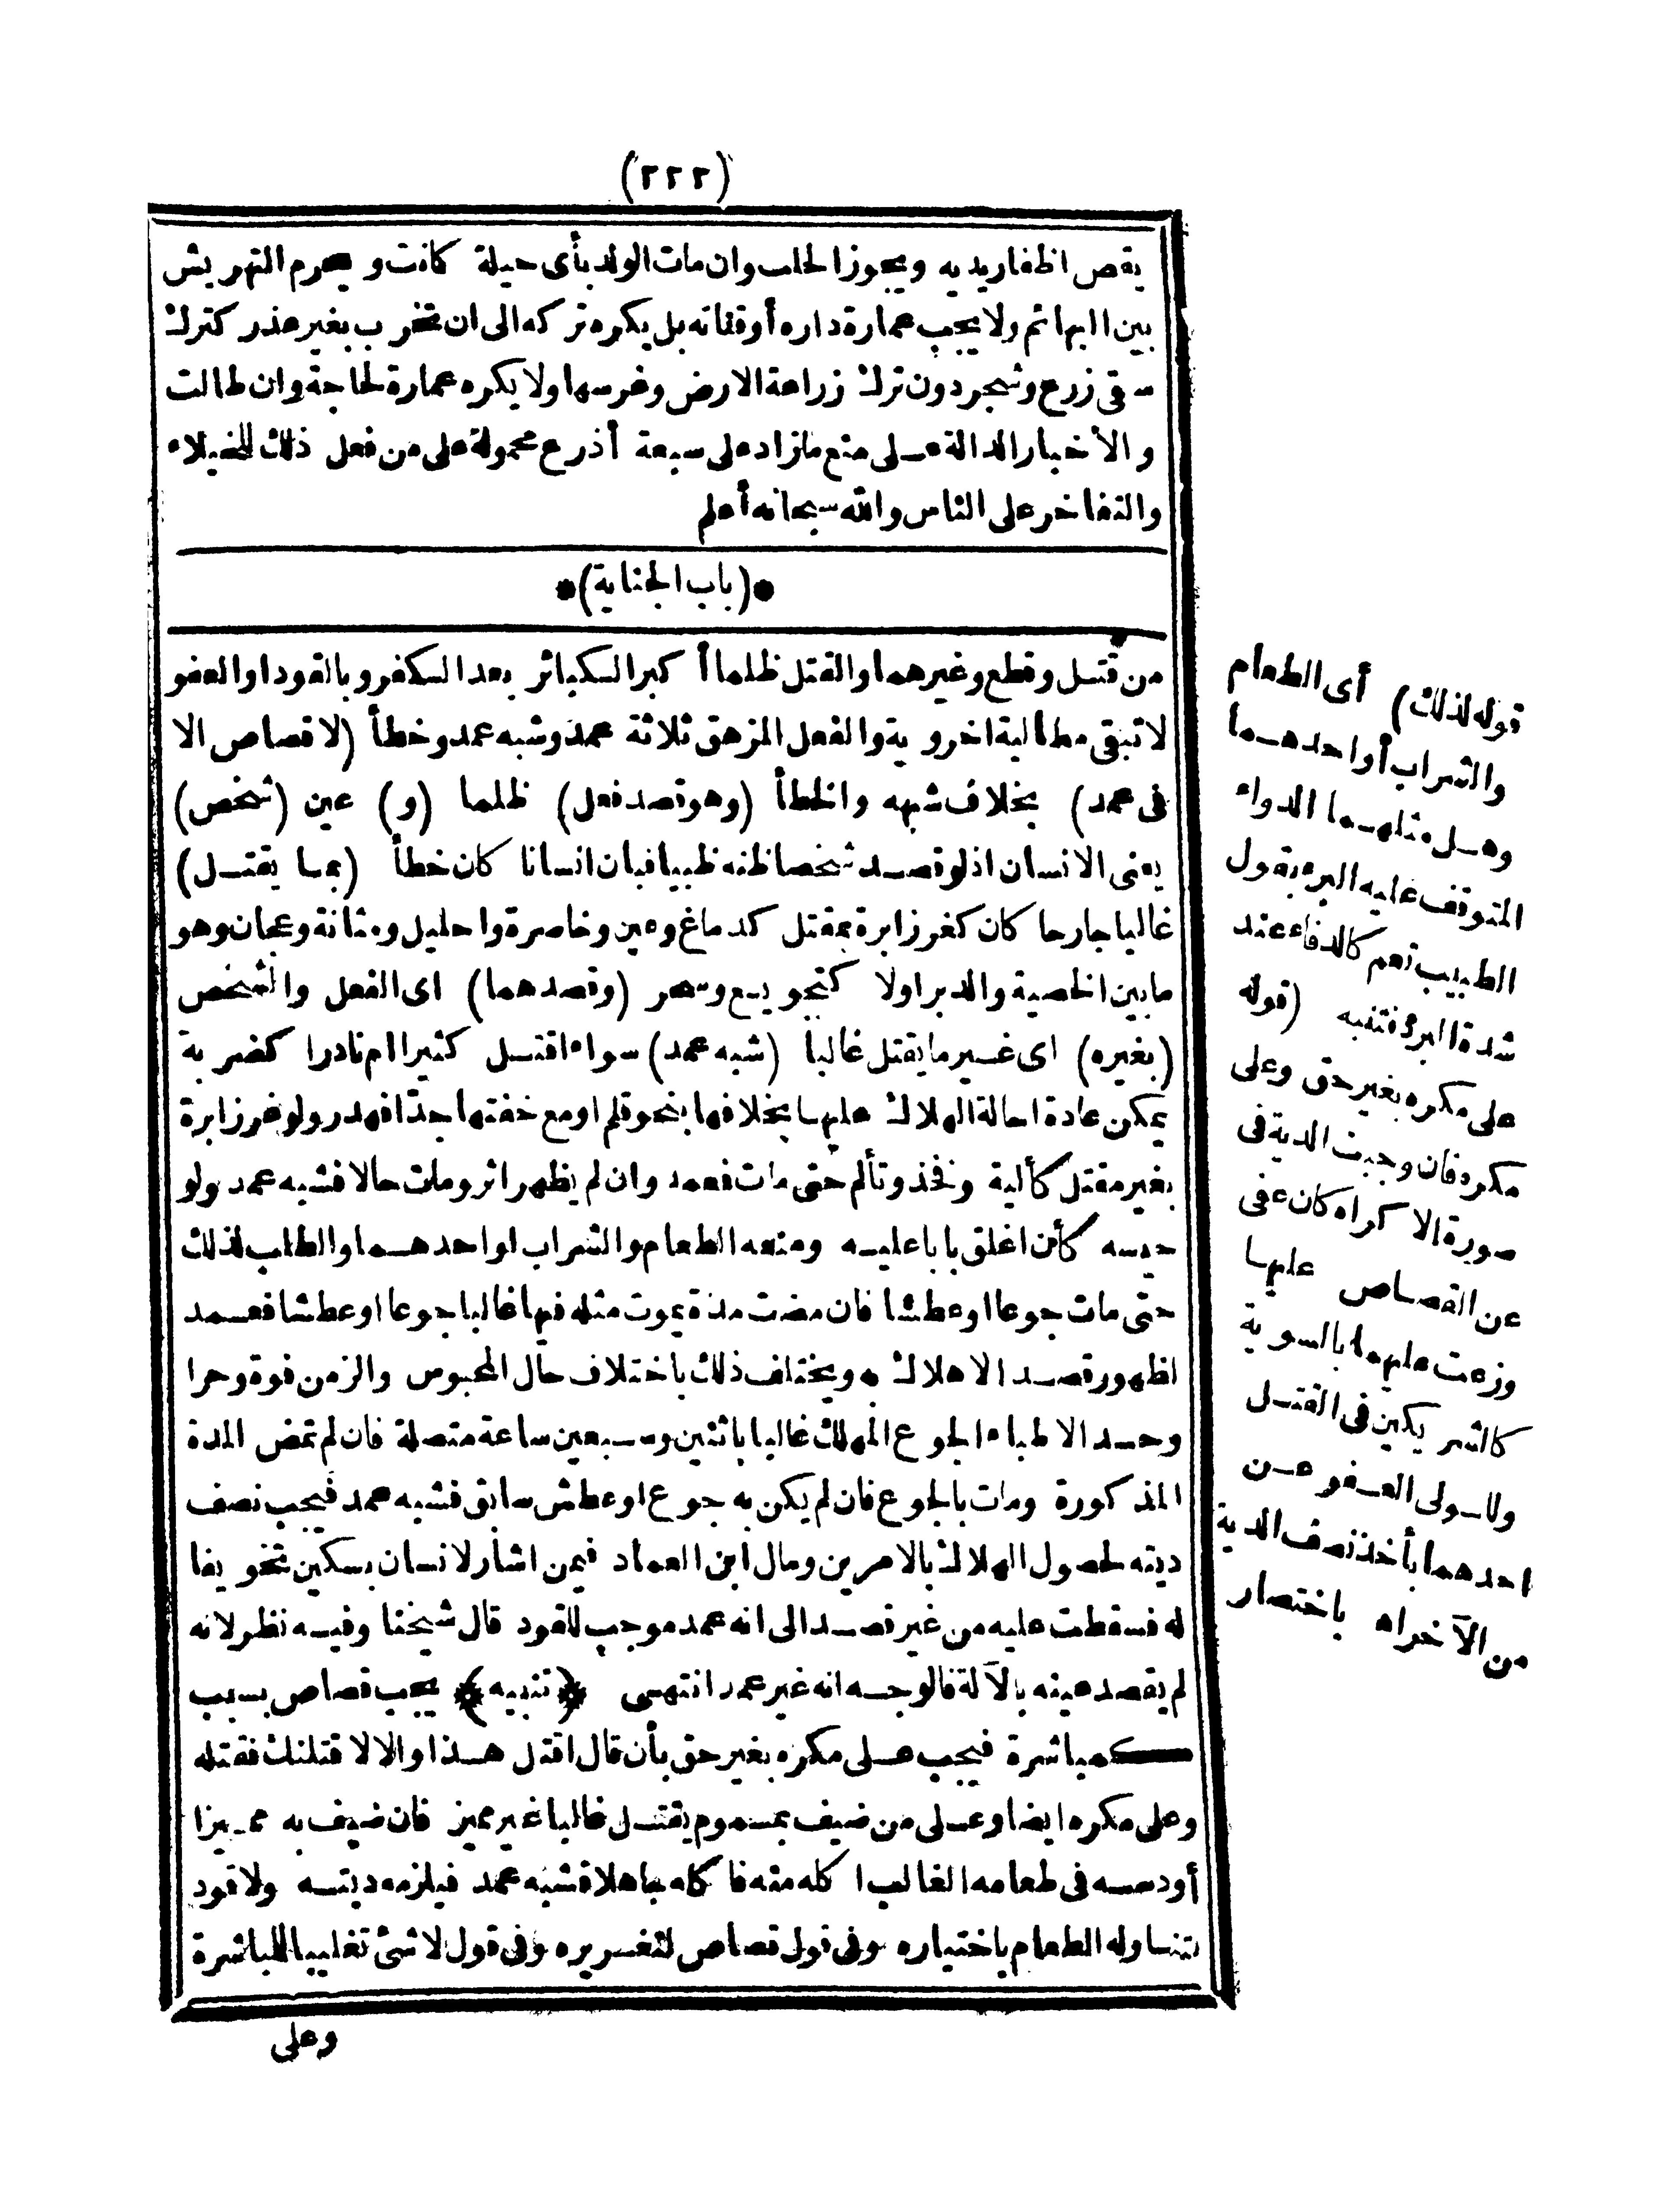 (٢٢٢)
يقص اظفار يديه ويجوز الحلب وان مات الولد بأى حيلة كانت ويحرم التهريش
بين البهائم ولا يجب عمارة داره أو قناته بل يكره تركه الى ان تخرب بغير عذر كترك
سقى زرع وشجر دون ترك زراعة الارض وغرسها ولا يكره عمارة لحاجة وان طالت
والأخبار الدالة على منع مازاد على سبعة أذرع محمولة على من فعل ذلك للخيلاء
والتفاخر على الناس والله سبحانه أعلم
*(باب الجناية)*
من قتل وقطع وغيرهما والقتل ظلما أكبر الكبائر بعد الكفر وبالقود او العفو
لا تبقى مطالبة اخروية والفعل المزهق ثلاثة عمد وشبه عمد وخطأ (لا قصاص الا
فى عمد) بخلاف شبهه والخطأ (وهو قصد فعل) ظلما (و) عين (شخص)
يعنى الانسان اذ لو قصد شخصا ظنه ظبيا فبان انسانا كان خطأ (بما يقتل)
غالبا جارحا كان كغرز ابرة بمقتل كدماغ وعين وخاصرة واحليل ومثانة وعجان وهو
ما بين الخصية والدبر اولا كتجويع وسحر (وقصدهما) اى الفعل والشخص
(بغيره) اى غير ما يقتل غالبا (شبه عمد) سواء اقتل كثيرا ام نادرا كضربة
يمكن عادة احالة الهلاك عليها بخلافها بنحو قلم او مع خفتها جدّا فهدر ولو غرز ابرة
بغير مقتل كألية وفخذ وتألم حتى مات فعمد وان لم يظهر اثر ومات حالا فشبه عمد ولو
حبسه كأن اغلق بابا عليه ومنعه الطعام والشراب او احدهما والطلب لذلك
حتى مات جوعا او عطشا فان مضت مدّة يموت مثله فيها غالبا جوعا او عطشا فعمد
لظهور قصد الاهلاك به ويختلف ذلك باختلاف حال المحبوس والزمن قوة وحرا
وحد الاطباء الجوع المهلك غالبا باثنين وسبعين ساعة متصلة فان لم تمض المدة
المذكورة ومات بالجوع فان لم يكن به جوع او عطش سابق فشبه عمد فيجب نصف
ديته لحصول الهلاك بالامرين ومال ابن العماد فيمن اشار لانسان بسكين تخويفا
له فسقطت عليه من غير قصد الى انه عمد موجب للقود قال شيخنا وفيه نظر لانه
لم يقصد عينه بالآلة فالوجه انه غير عمد انتهى ﴿تنبيه﴾ يجب قصاص بسبب
كمباشرة فيجب على مكره بغير حق بأن قال اقتل هذا والا لاقتلنك فقتله
وعلى مكره ايضا وعلى من ضيف بمسموم يقتل غالبا غير مميز فان ضيف به مميزا
أو دسه فى طعامه الغالب اكله منه فاكله جاهلا فشبه عمد فيلزمه ديته ولا قود
لتناوله الطعام باختياره وفى قول قصاص لتغريره وفى قول لا شئ تغليبا للمباشرة
وعلى
قوله لذلك) أى الطعام
والشراب أو احدهما
وهل مثلهما الدواء
المتوقف عليه البرء بقول
الطبيب نعم كالدفاء عند
شدة البرد فتنبه (قوله
على مكره بغير حق وعلى
مكره فان وجبت الدية فى
صورة الاكراه كان عفى
عن القصاص عليها
وزعت عليهما بالسوية
كالشريكين فى القتل
وللولى العفو عن
احدهما بأخذ نصف الدية
من الآخر اه باختصار